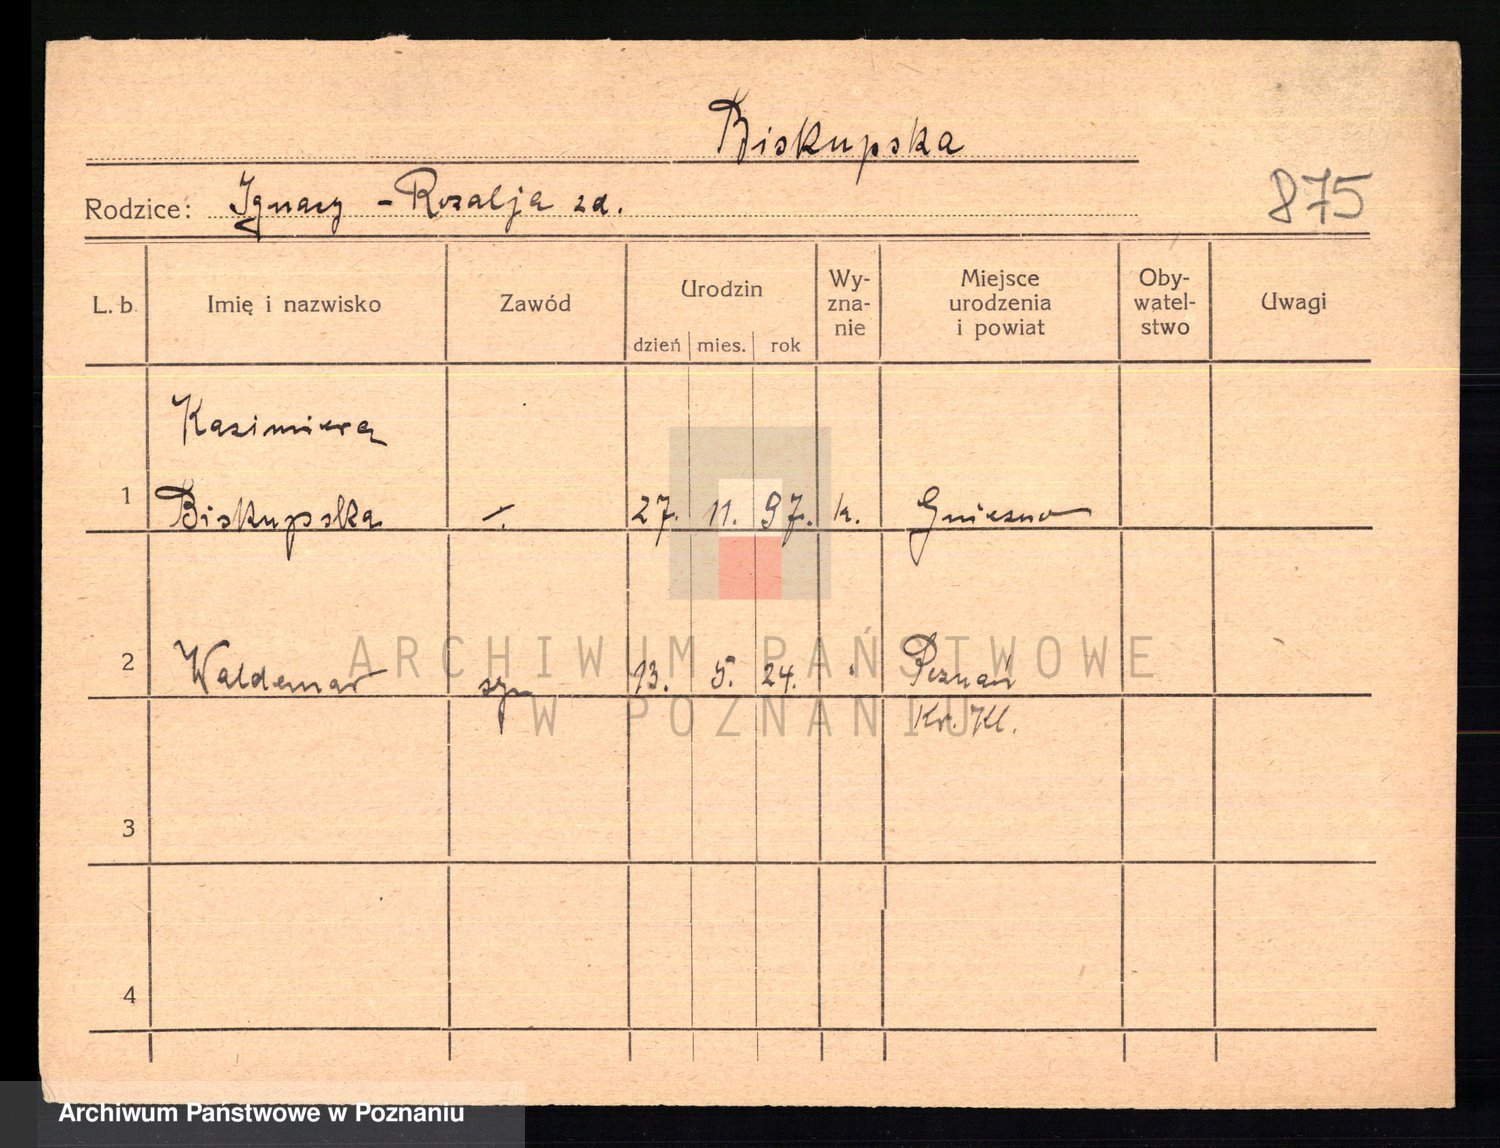 Biskupska
Rodzice: Ignacy - Rozalja zd.
875
L. b. Imię i nazwisko Zawód Urodzin dzień mies. rok Wy-zna-nie Miejsce urodzenia i powiat Oby-watel-stwo Uwagi
Kazimiera
1 Biskupska -. 27. 11. 97. k. Gniezno
2 Waldemar syn 13. 5. 24. " Poznań
Kr. Kl.
3
4
ARCHIWUM PAŃSTWOWE
W POZNANIU
Archiwum Państwowe w Poznaniu